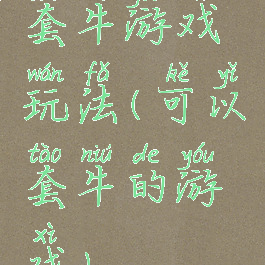 套牛游戏
wán fǎ kě yǐ
玩法(可以
tào niú de yóu
套牛的游
xì
戏)